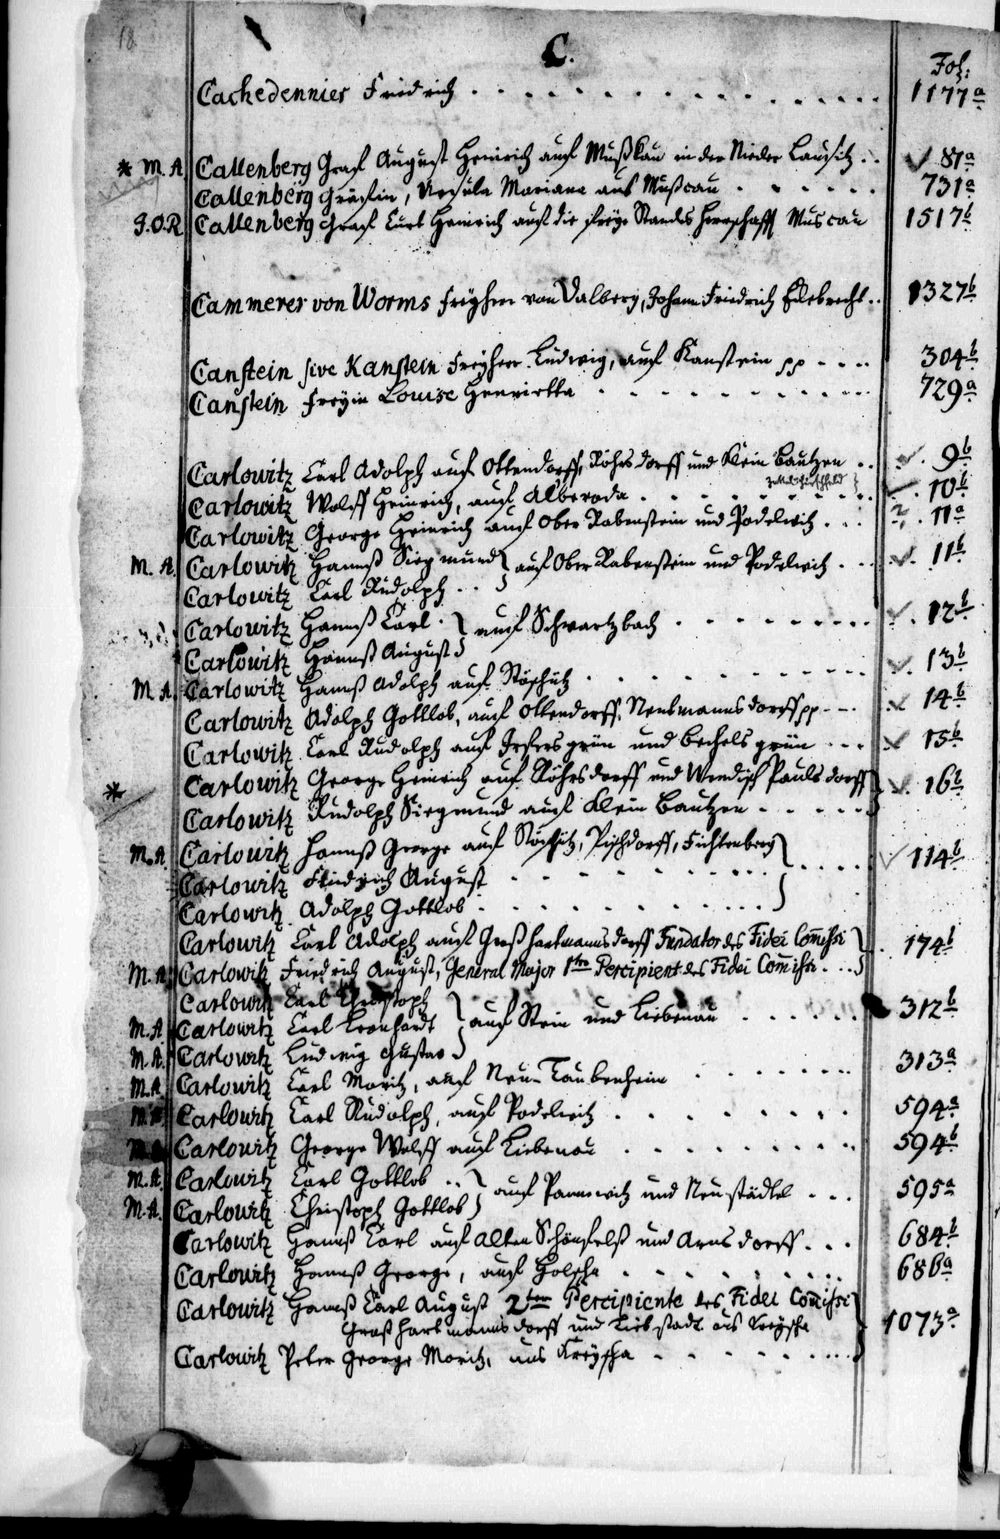 18
C.
Fol:
Cachedennier Friedrich 1177a
* M. A. Callenberg Graf August Heinrich auf Mußkau in der Nieder Lausitz 81a
Callenberg Gräfin, Ursula Mariana aus Muscau 731a
J.O.R. Callenberg Graf Curt Heinrich auf die freye Standes Herrschafft Muscau 1517b
Cammerer von Worms Freyherr von Dalberg, Johann Friedrich Eckebrecht 1327b
Canstein sive Kanstein Freyherr Ludwig, auf Kanstein pp 304b
Canstein Freyin Louise Henrietta 729a
Carlowitz Carl Adolph auf Ottendorff, Röhrsdorff und Klein Bautzen 9b
Carlowitz Wolff Heinrich, auf Alberoda 10b
Carlowitz George Heinrich auf Ober Rabenstein und Podelwitz 11a
M. A. Carlowitz Hannß Siegmund } auf Ober Rabenstein und Podelwitz 11b
Carlowitz Carl Rudolph
Carlowitz Hannß Carl } auf Schwartzbach 12b
Carlowitz Hannß August 13b
M. A. Carlowitz Hannß Adolph auf Röschütz 14b
Carlowitz Adolph Gottlob, auf Ottendorff, Neukmannsdorff pp 15b
Carlowitz Carl Rudolph auf Irfersgrün und Bechelsgrün
* Carlowitz George Heinrich auf Röhrsdorff und Wendisch Paulsdorff 16b
Carlowitz Rudolph Siegmund auf Klein Bautzen
M. A. Carlowitz Hannß George auf Pischdorff, Fichtenberg 114b
Carlowitz Friedrich August
Carlowitz Adolph Gottlob
Carlowitz Carl Adolph auf Großhartmannsdorff Fundator des Fidei Com̅issi 174b
M. A. Carlowitz Friedrich August, General Major 1ter Percipient des Fidei Com̅issi
Carlowitz Carl Christoph 312b
M. A. Carlowitz Carl Leonhardt } auf Stein und Liebenau
M. A. Carlowitz Ludwig Gustav 313a
M. A. Carlowitz Carl Moritz, auf Neu-Taubenheim
M. A. Carlowitz Carl Rudolph, auf Podelwitz 594a
M. A. Carlowitz George Wolff auf Liebenau 594b
M. A. Carlowitz Carl Gottlob } auf Pannewitz und Neustädtel 595a
M. A. Carlowitz Christoph Gottlob
Carlowitz Hannß Carl auf Alten Schönfelß und Arnsdorff 684b
Carlowitz Hannß George, auf Holscha 686a
Carlowitz Hannß Carl August 2ter Percipiente des Fidei Com̅issi
Großhartmannsdorff und Liebstadt aus Kreyscha 1073a
Carlowitz Peter George Moritz, aus Kreyscha